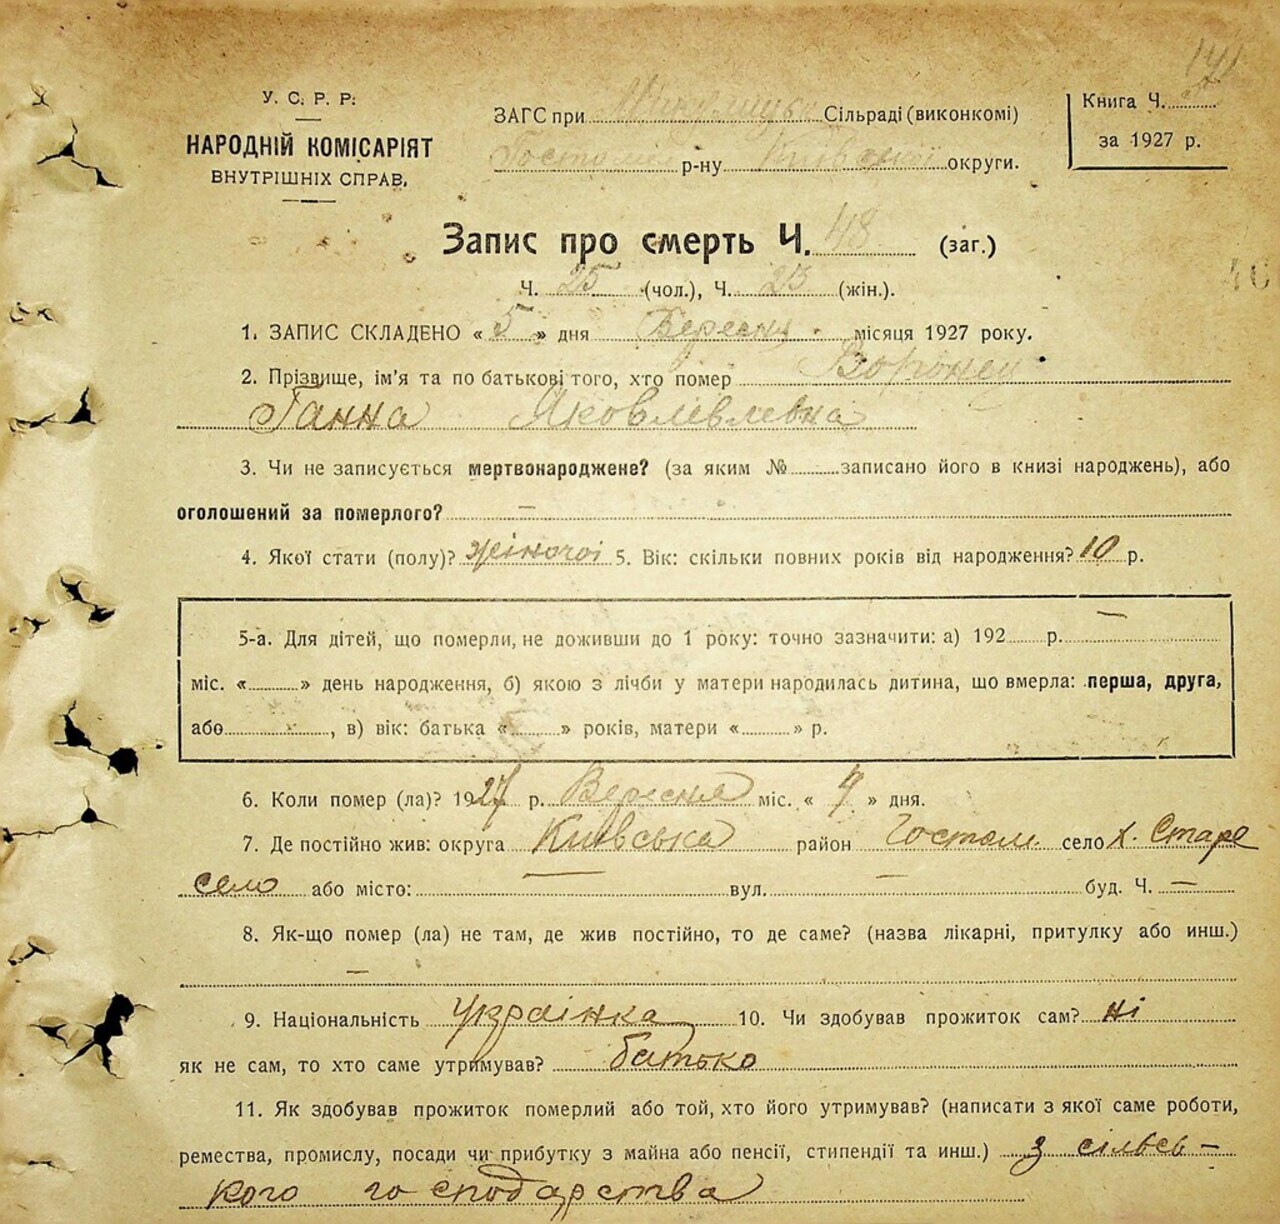 У. С. Р. Р.
НАРОДНІЙ КОМІСАРІЯТ
ВНУТРІШНІХ СПРАВ.
ЗАГС при Сільраді (виконкомі)
Гостомел р-ну Київської округи.
Книга Ч.
за 1927 р.
Запис про смерть Ч. 48 (заг.)
Ч. 25 (чол.), Ч. 23 (жін.).
1. ЗАПИС СКЛАДЕНО « 5 » дня Вересня місяця 1927 року.
2. Прізвище, ім'я та по батькові того, хто помер Воронец
Ганна Яковлівлевна
3. Чи не записується мертвонароджене? (за яким № записано його в книзі народжень), або
оголошений за померлого? —
4. Якої стати (полу)? жіночоі 5. Вік: скільки повних років від народження? 10 р.
5-а. Для дітей, що померли, не доживши до 1 року: точно зазначити: а) 192 р. —
міс. « » день народження, б) якою з лічби у матери народилась дитина, що вмерла: перша, друга,
або , в) вік: батька « » років, матери « » р.
6. Коли помер (ла)? 1927 р. Вересня міс. « 4 » дня.
7. Де постійно жив: округа Київська район Гостом. село х. Старе
село або місто: — вул. — буд. Ч. —
8. Як-що помер (ла) не там, де жив постійно, то де саме? (назва лікарні, притулку або инш.)
—
9. Національність Украінка 10. Чи здобував прожиток сам? ні
як не сам, то хто саме утримував? батько
11. Як здобував прожиток померлий або той, хто його утримував? (написати з якої саме роботи,
ремества, промислу, посади чи прибутку з майна або пенсії, стипендії та инш.) з сільсь-
кого господарства